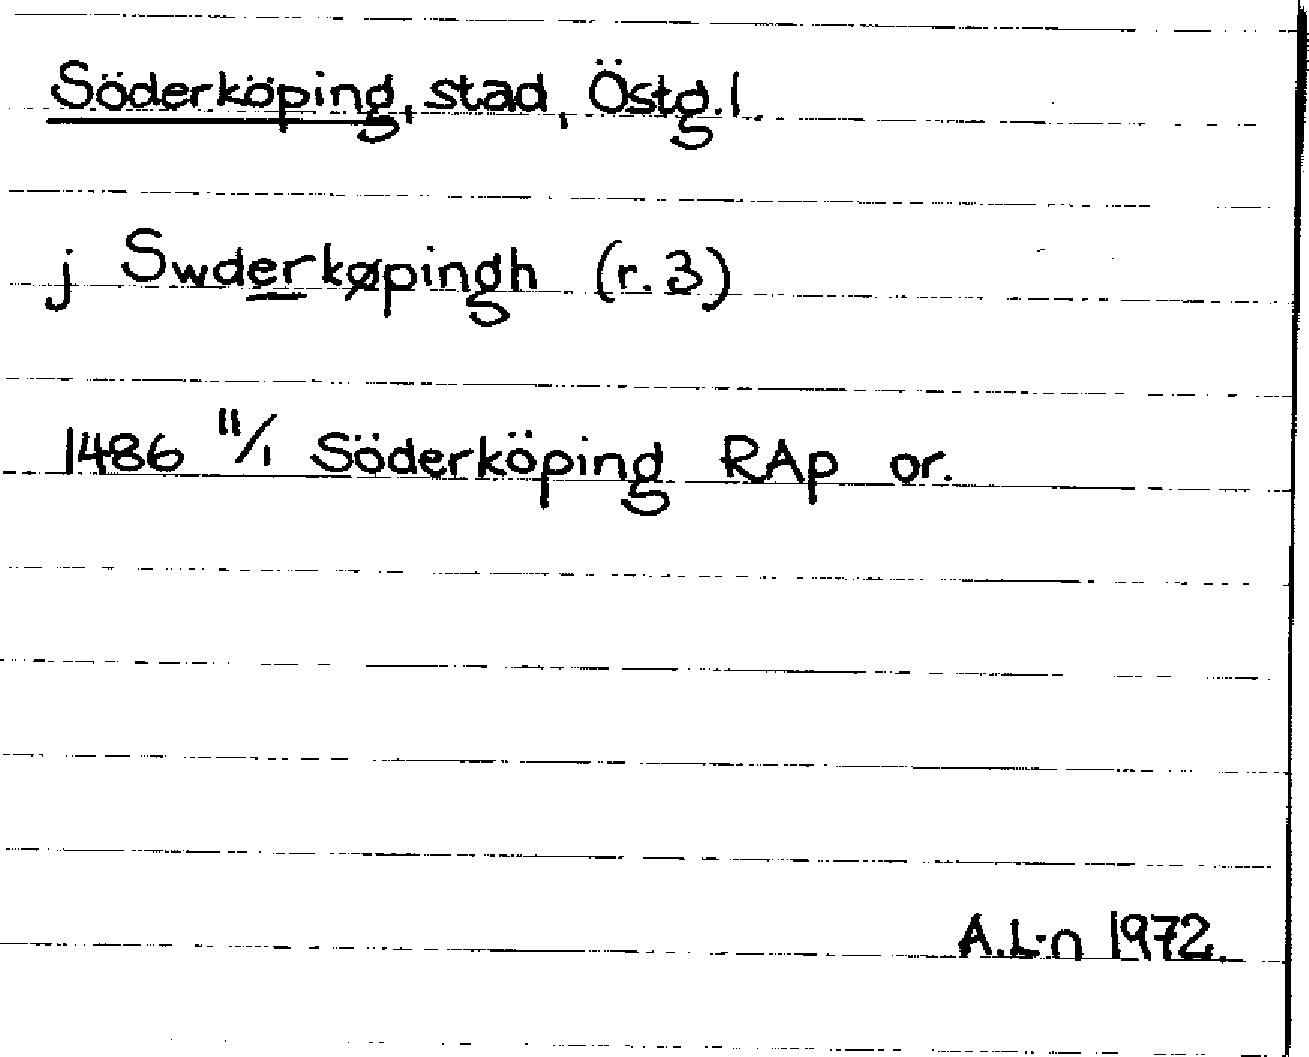 Söderköping, stad, Östg.l.
j Swderkøpingh (r. 3)
1486 11/1 Söderköping RAp or.
A.L:n 1972.